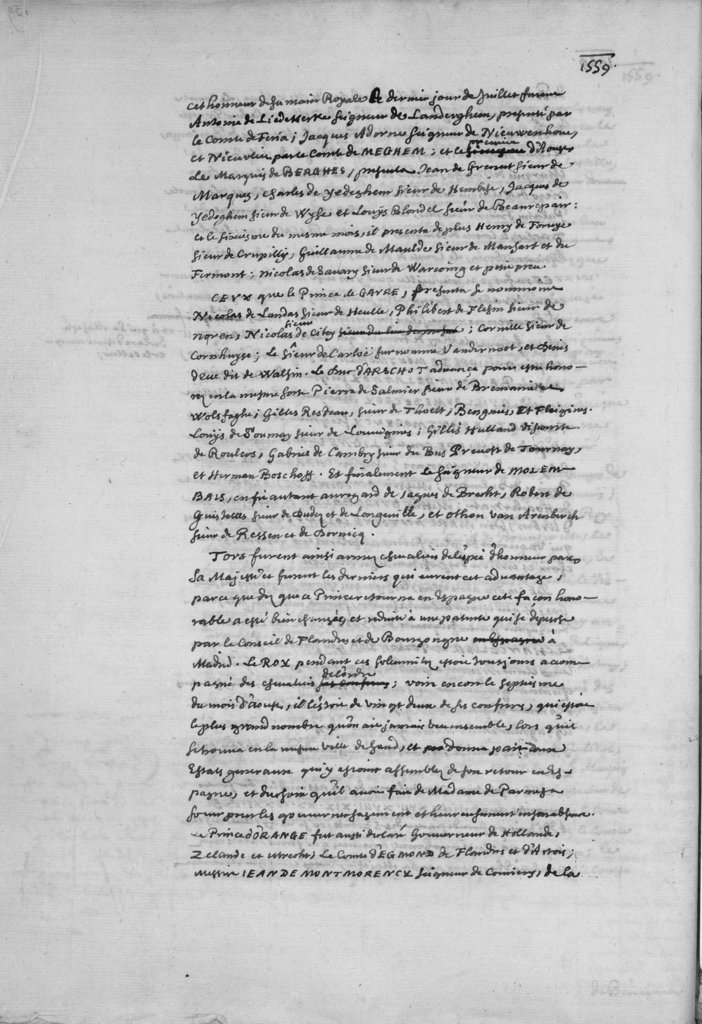 1559.
cet honneur de sa main Royale le dernier jour de Juillet furent
Antoine de Liedekerke seigneur de Landenghem, presenté par
le Comte de Feria; Jacques Adorne seigneur de Nieuwenhove,
et Nieuvliet par le Comte de MEGHEM; et le premier d'Aoust
Le Marquis de BERGHES, presenta Jean de Grenut sieur de
Marques, Charles de Yedeghem sieur de Hembise, Jacques de
Yedeghem sieur de Wyse et Louÿs Blondel sieur de Beaurepair:
et le sixiesme du mesme mois, il presenta de plus Henry de
sieur de Crupilly, Guillaume de Maulde sieur de Mansart et de
Firmont; Nicolas de Savary sieur de Warcoing et petit preu.
CEUX que le Prince de GAVRE, presenta se nommoient
Nicolas de Landas sieur de Heulle, Philibert de Flesin sieur de
noren, Nicolas sieur de Citey ; Cornille sieur de
Cornhuyse; Le Sieur de Carloë surnommé Vandernoot, et Denis
dit de Walsin. Le Duc D'ARSCHOT advança pour estre hono-
rez en la mesme sorte Pierre de Salmier sieur de Bremaine
Gilles Resteau, sieur de Thoelt, et
Louÿs de Tournay sieur de Louvignies; Gilles Halland Visconte
de Roulers, Gabriel de Cambry sieur du Bus Prevost de Tournay,
et Herman Boschoff. Et finalement le seigneur de MOLEM
BAIS, en fit autant au regard de Jaques de Brecht, Robert de
Guistelles sieur de et de Longeville, et Othon van Arenberch
sieur de Ressen et de Dornicq.
TOUS furent ainsi armez chevaliers de l'espée d'honneur par
Sa Majesté et furent les derniers qui eurent cet advantage,
parce que dez que ce Prince retourna en Espagne cete façon hono-
rable a esté bien changée et reduite à une patente qui se depesche
par le Conseil de Flandres et de Bourgongne à
Madrid. Le ROY pendant ces solemnitez estoit tousjours accom-
pagné des chevaliers de l'ordre; voire encor le septiesme
du mois d'Aoust, il l'estoit de vingt deux de ses confreres, qui estoit
le plus grand nombre qu'on ait jamais veu ensemble, lors qu'il
se trouva en la mesme ville de Gand, et donna part aux
Estats generaux qui y estoient assemblez de son retour en Es-
pagne, et du choix qu'il avoit fait de Madame de Parme sa
sœur pour les gouverner sagement et heureusement en son absence.
Le Prince D'ORANGE fut aussi declaré Gouverneur de Hollande,
Zelande et Utrecht, Le Comte d'EGMOND de Flandres et d'Artois;
Messire IEAN DE MONTMORENCY seigneur de Courieres, de la